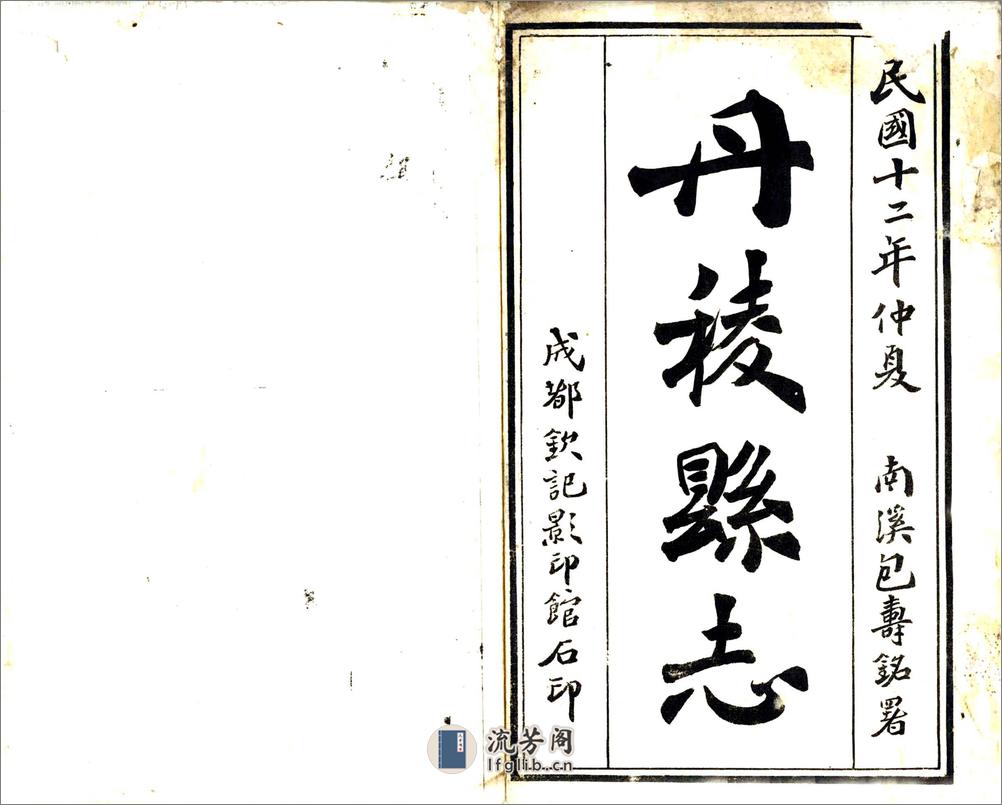 民國十二年仲夏 南溪包壽銘署
丹稜縣志
成都欽記影印館石印
流芳阁
lfglib.cn